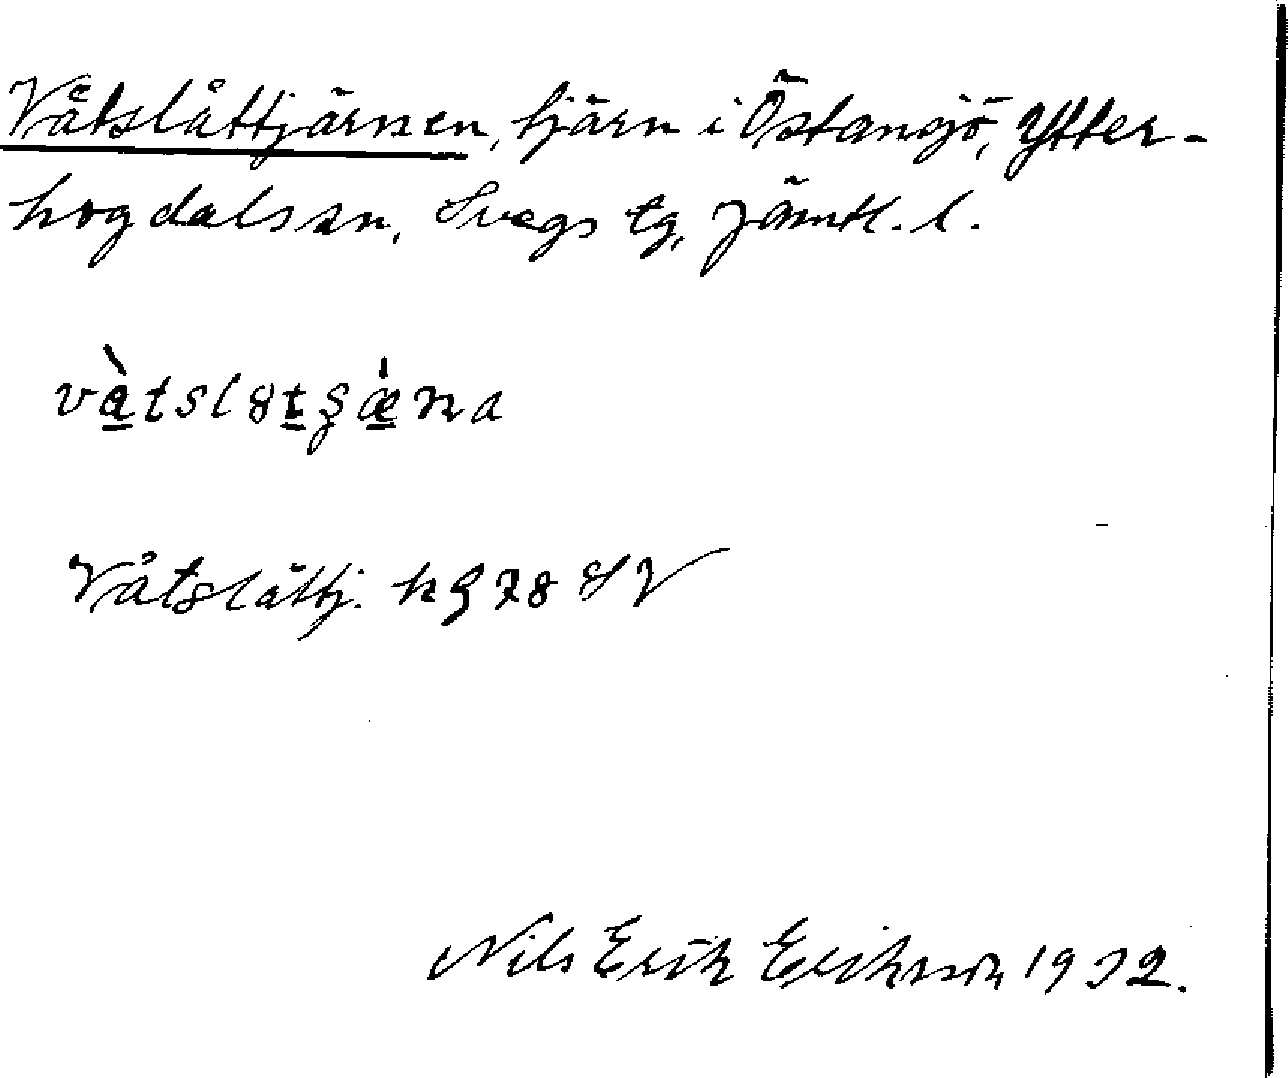 Våtslåttjärnen, tjärn i Östansjö, Ytter-
hogdals sn, Svegs tg, Jämtl. l.
Våtslåttj. kg 78 SV
Nils Erik Eriksson 1932.